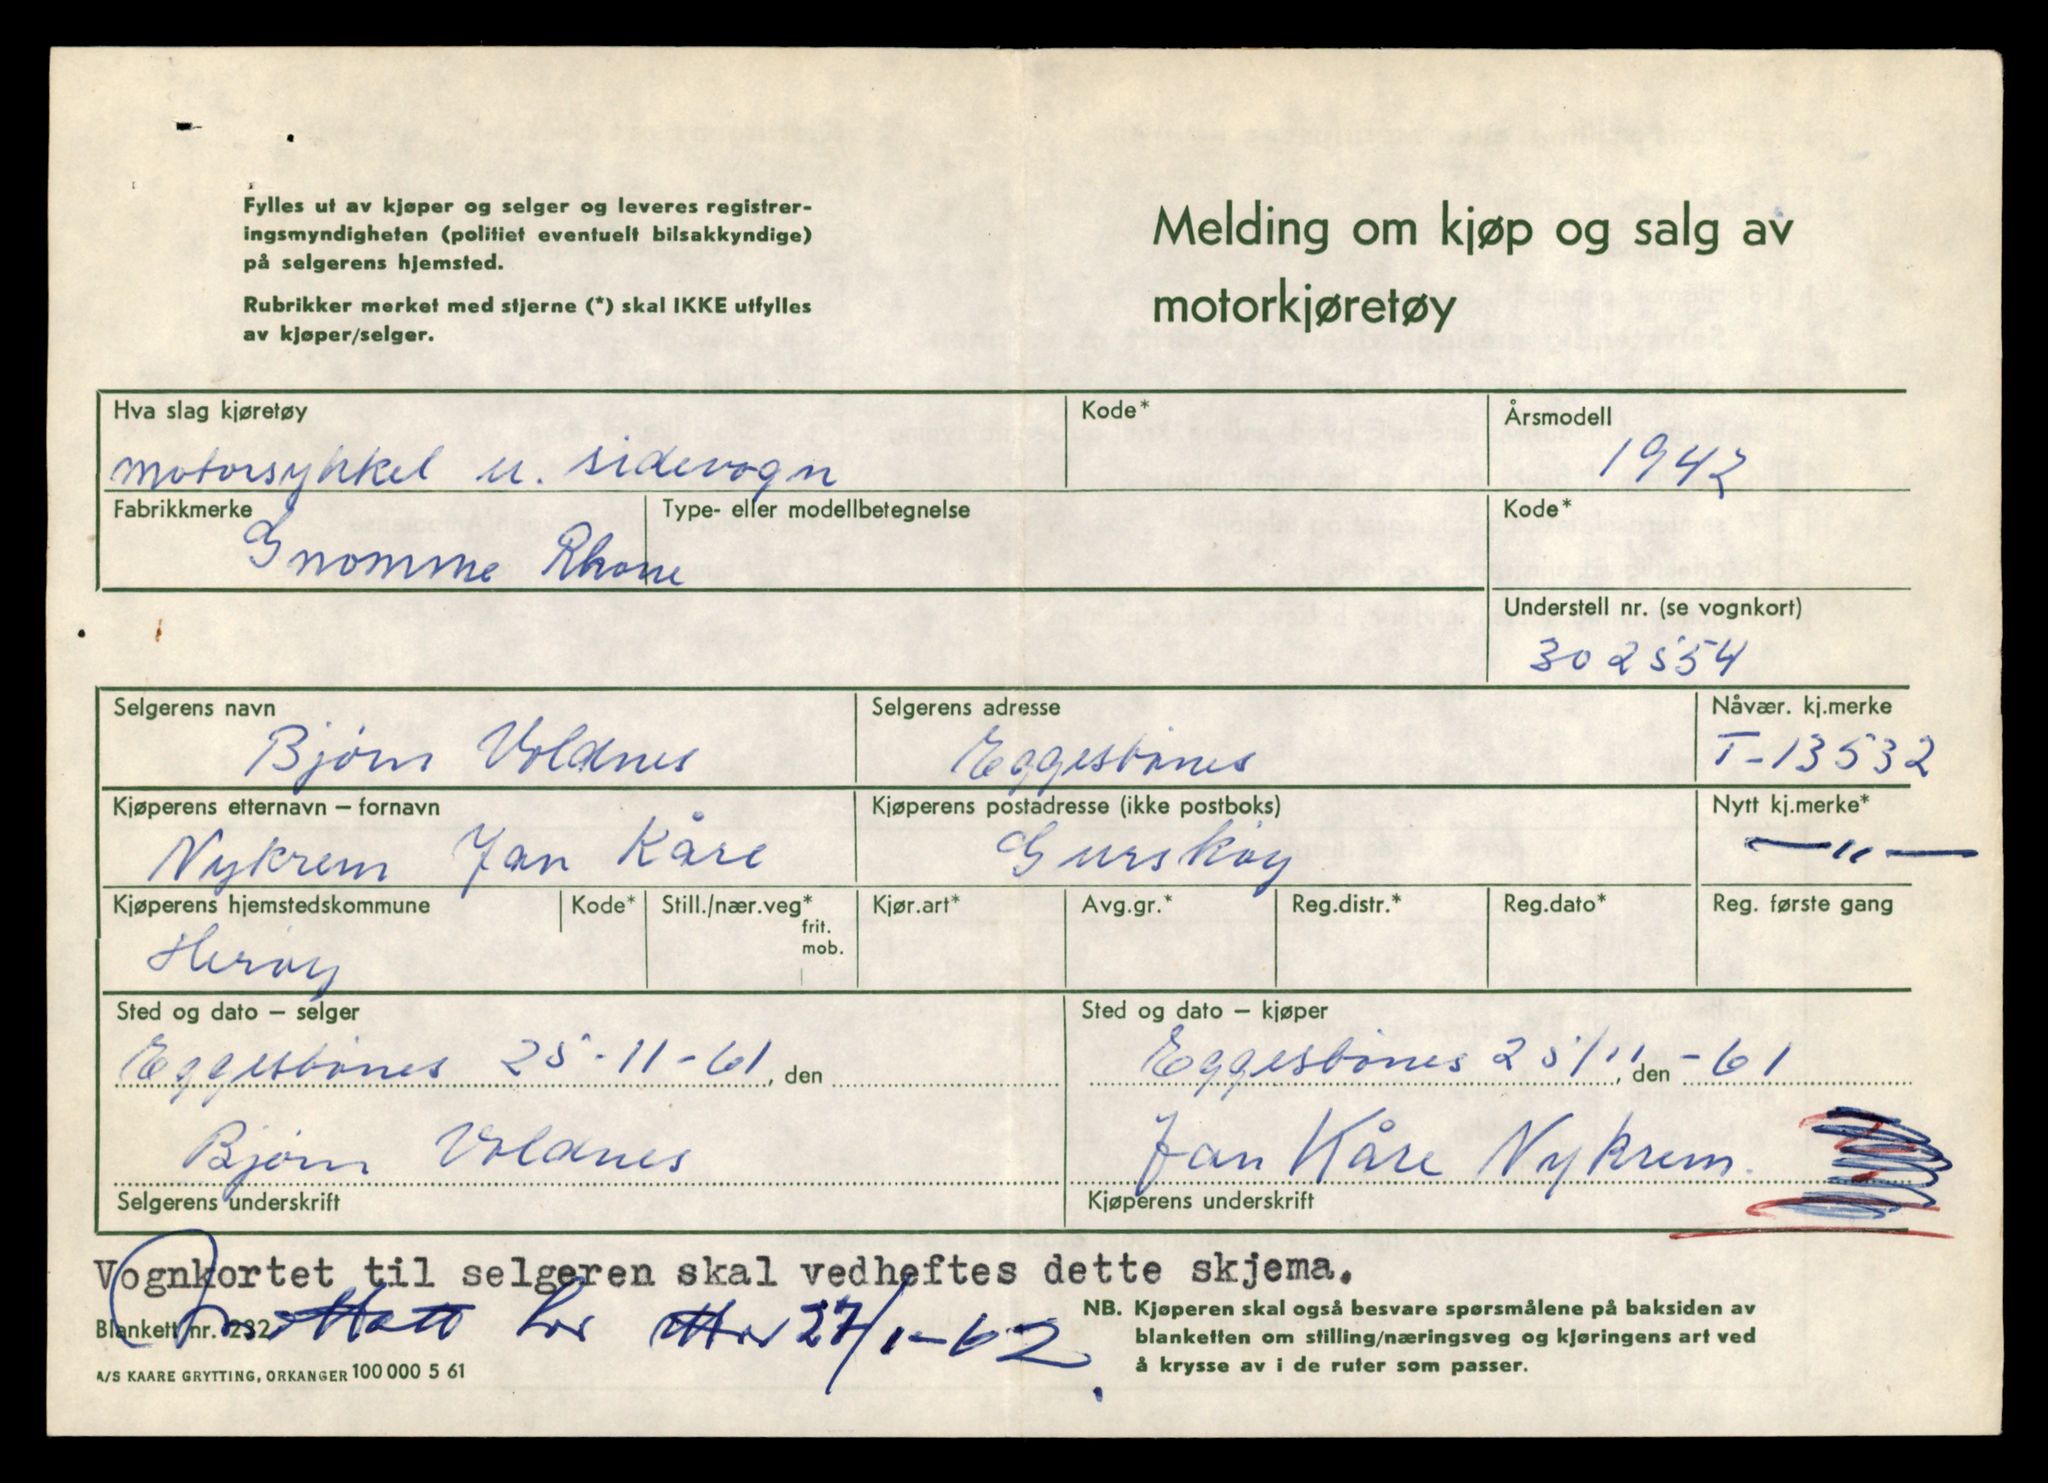 Fylles ut av kjøper og selger og leveres registrer-
ingsmyndigheten (politiet eventuelt bilsakkyndige)
på selgerens hjemsted.
Rubrikker merket med stjerne (*) skal IKKE utfylles
av kjøper/selger.
Melding om kjøp og salg av
motorkjøretøy
Hva slag kjøretøy
Kode*
Årsmodell
motorsykkel u. sidevogn
1942
Fabrikkmerke
Type- eller modellbetegnelse
Kode*
Gnomme Rhone
Understell nr. (se vognkort)
302554
Selgerens navn
Selgerens adresse
Nåvær. kj.merke
Bjørn Voldnes
Eggesbønes
T-13532
Kjøperens etternavn – fornavn
Kjøperens postadresse (ikke postboks)
Nytt kj.merke*
Nykrem Jan Kåre
Gurskøy
— " —
Kjøperens hjemstedskommune
Kode*
Still./nær.veg*
frit.
mob.
Kjør.art*
Avg.gr.*
Reg.distr.*
Reg.dato*
Reg. første gang
Herøy
Sted og dato – selger
Sted og dato – kjøper
Eggesbønes 25-11-61, den
Eggesbønes 25/11, den -61
Bjørn Voldnes
Jan Kåre Nykrem.
Selgerens underskrift
Kjøperens underskrift
Vognkortet til selgeren skal vedheftes dette skjema.
27/1-62
Blankett nr. 232
A/S KAARE GRYTTING, ORKANGER 100 000 5 61
NB. Kjøperen skal også besvare spørsmålene på baksiden av
blanketten om stilling/næringsveg og kjøringens art ved
å krysse av i de ruter som passer.